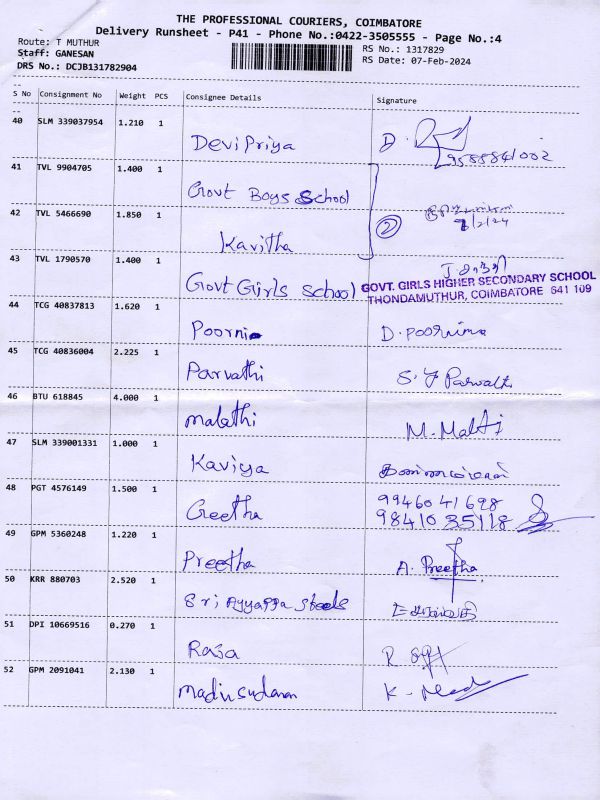 THE PROFESSIONAL COURIERS, COIMBATORE
Delivery Runsheet - P41 - Phone No.:0422-3505555 - Page No.:4
Route: T MUTHUR
RS No.: 1317829
Staff: GANESAN
RS Date: 07-Feb-2024
DRS No.: DCJB131782904
S No Consignment No Weight PCS Consignee Details Signature
40 SLM 339037954 1.210 1
DeviPriya D.
9588841002
41 TVL 9904705 1.400 1
Govt Boys School
42 TVL 5466690 1.850 1
Kavitha 2
43 TVL 1790570 1.400 1
Govt Girls School GOVT. GIRLS HIGHER SECONDARY SCHOOL
THONDAMUTHUR, COIMBATORE 641 109
44 TCG 40837813 1.620 1
Poorni D. Poornima
45 TCG 40836004 2.225 1
Parvathi
46 BTU 618845 4.000 1
malathi M. Malti
47 SLM 339001331 1.000 1
Kaviya
48 PGT 4576149 1.500 1
Geetha 9946041698
9841035118
49 GPM 5360248 1.220 1
Preetha A. Preetha
50 KRR 880703 2.520 1
Sri Ayyappa Steels
51 DPI 10669516 0.270 1
Raja R
52 GPM 2091041 2.130 1
Madusudanan K-